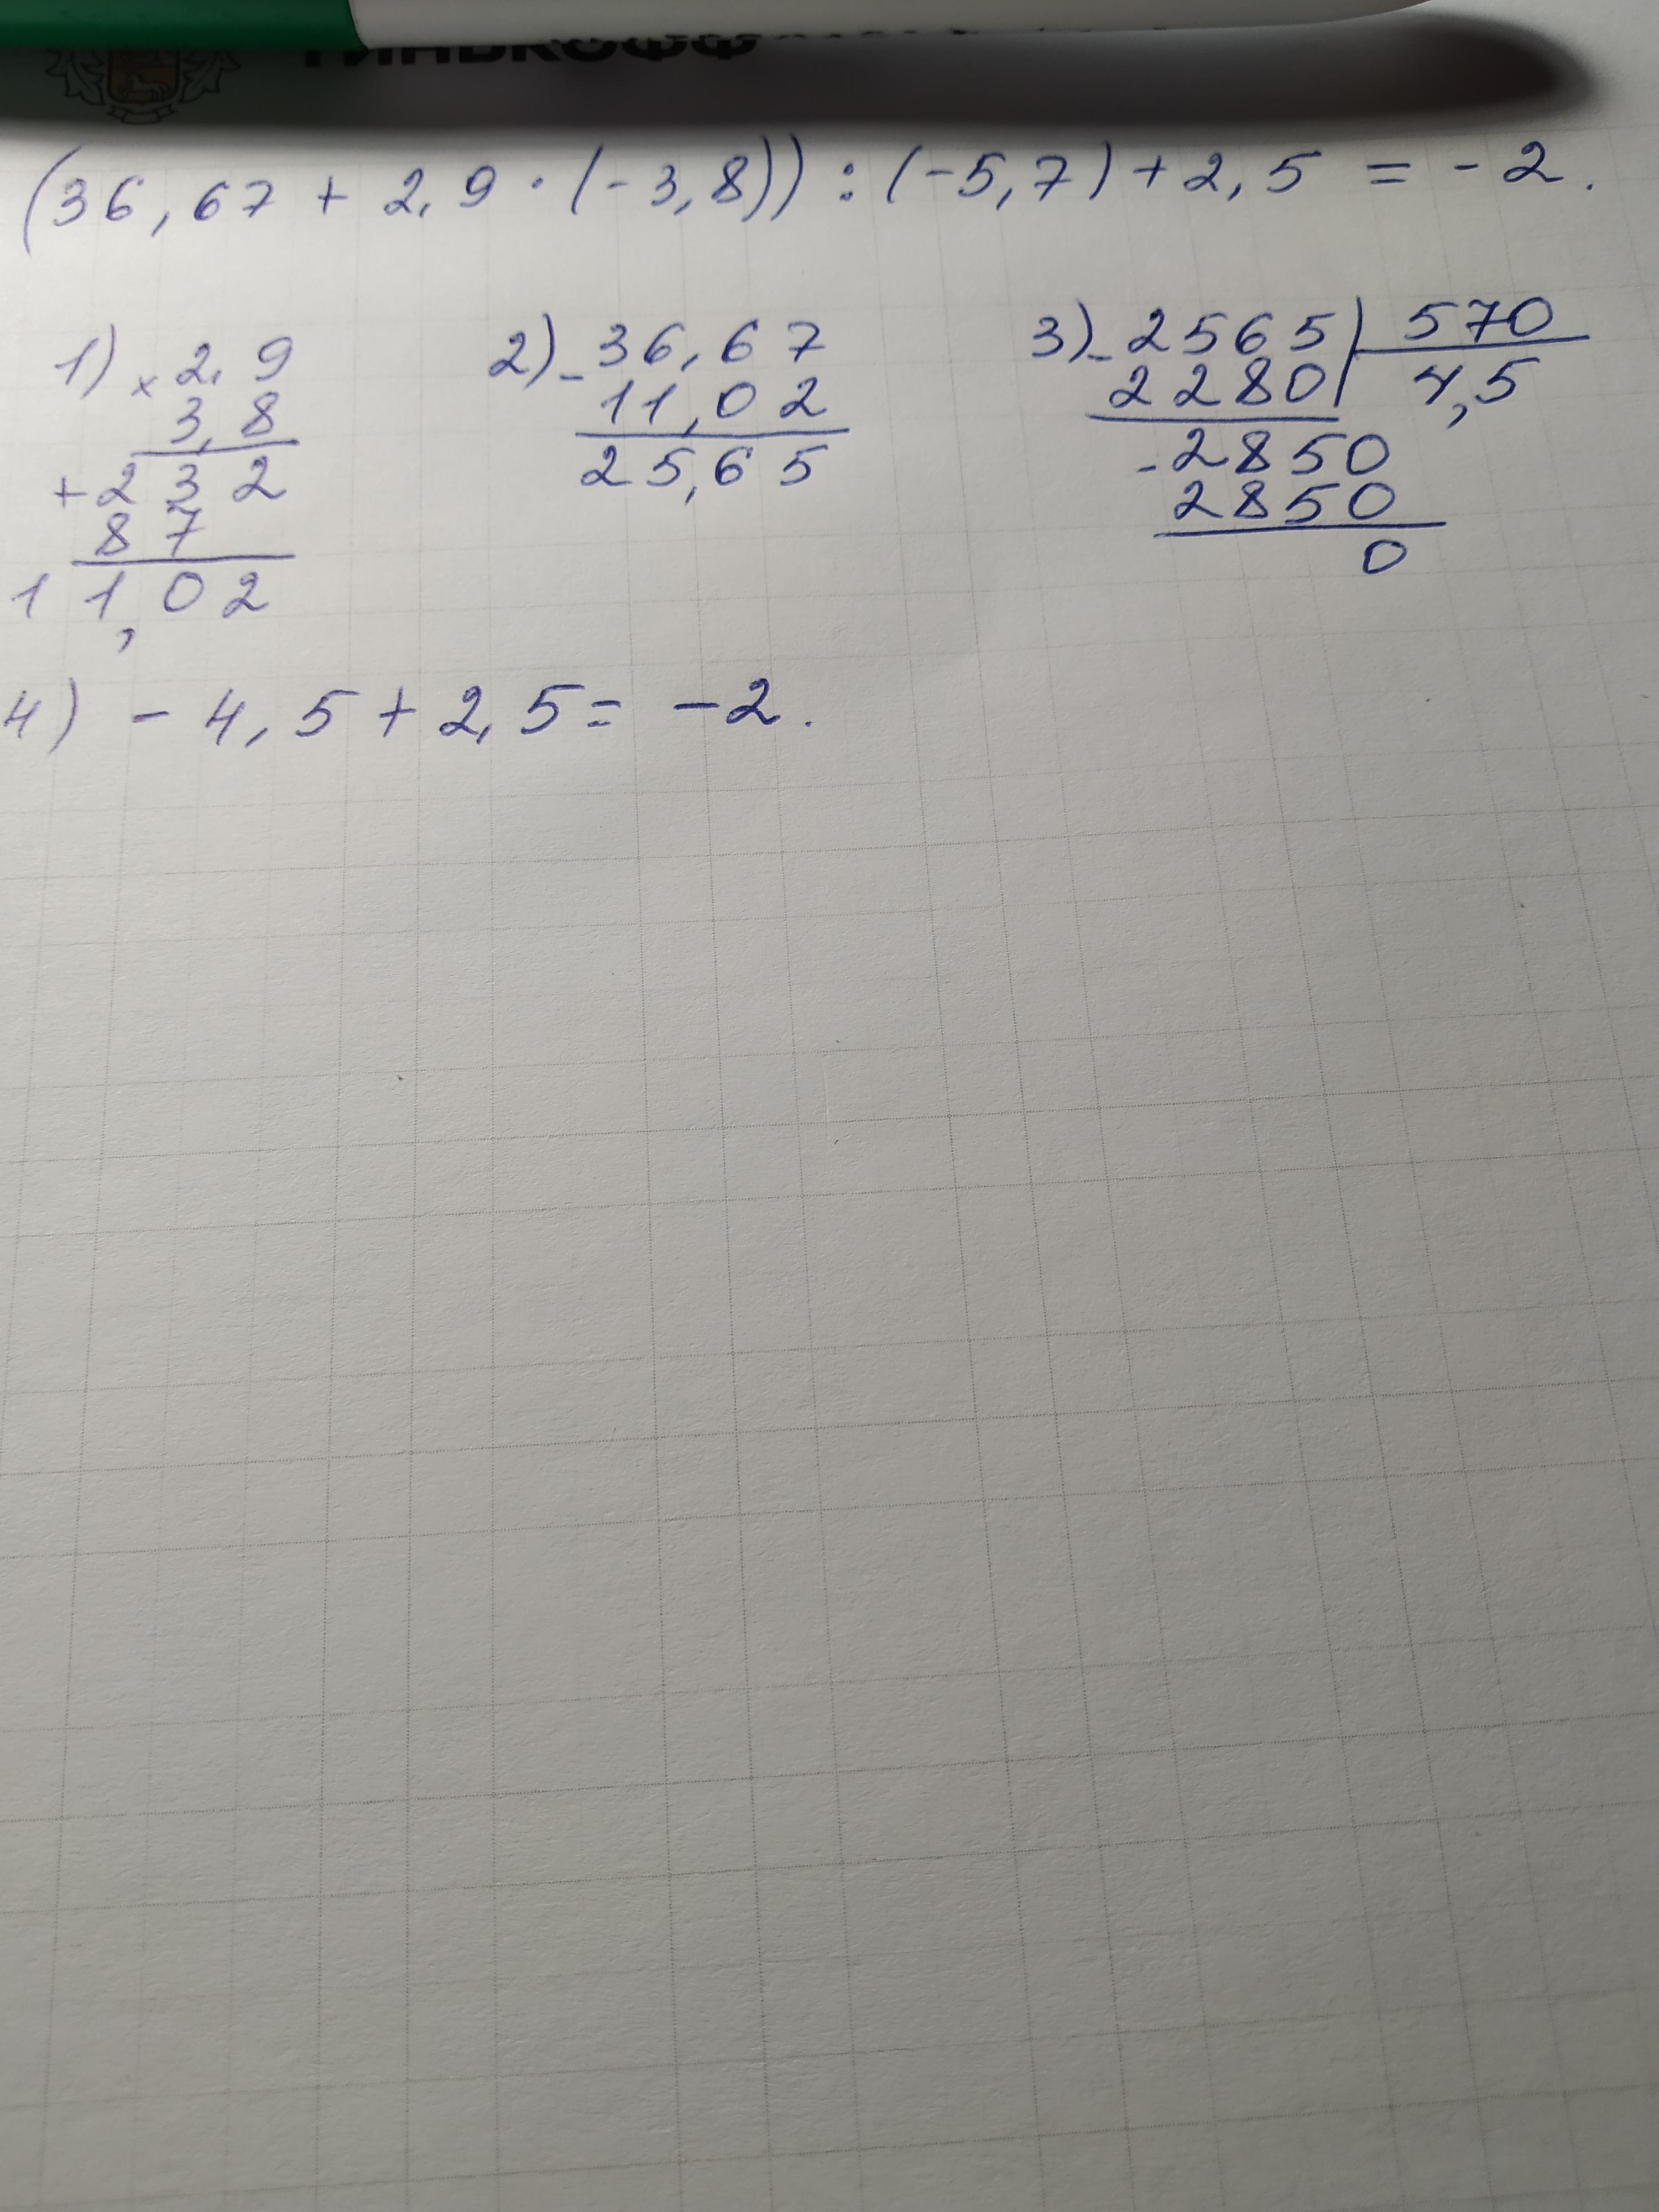 ТИНЬКОФФ
(36,67 + 2,9 · (-3,8)) : (-5,7) + 2,5 = -2.
1) × 2,9
3,8
+ 2 3 2
8 7
1 1,0 2
2) - 36,67
11,02
25,65
3) - 2565 570
2280 4,5
- 2850
2850
0
4) - 4,5 + 2,5 = -2.